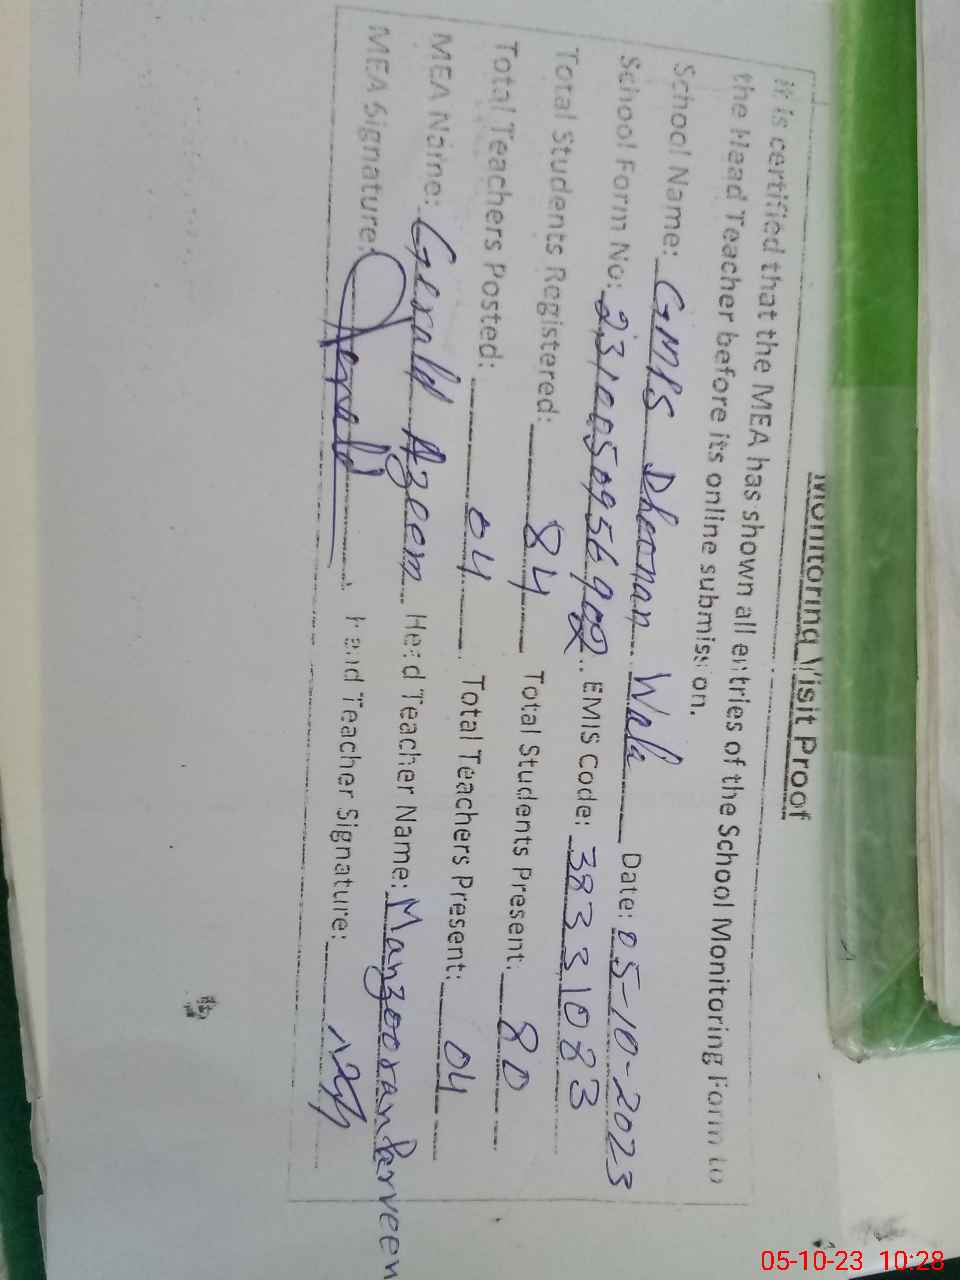 Monitoring Visit Proof
it is certified that the MEA has shown all entries of the School Monitoring Form to
the Head Teacher before its online submission.
School Name: GMPS Dhonan Wala Date: 05-10-2023
School Form No: EMIS Code: 38331083
Total Students Registered: 84 Total Students Present: 80
Total Teachers Posted: 04 Total Teachers Present: 04
MEA Name: Gerald Azeem Head Teacher Name: Manzooran Parveen
MEA Signature: Gerald Head Teacher Signature:
05-10-23 10:28